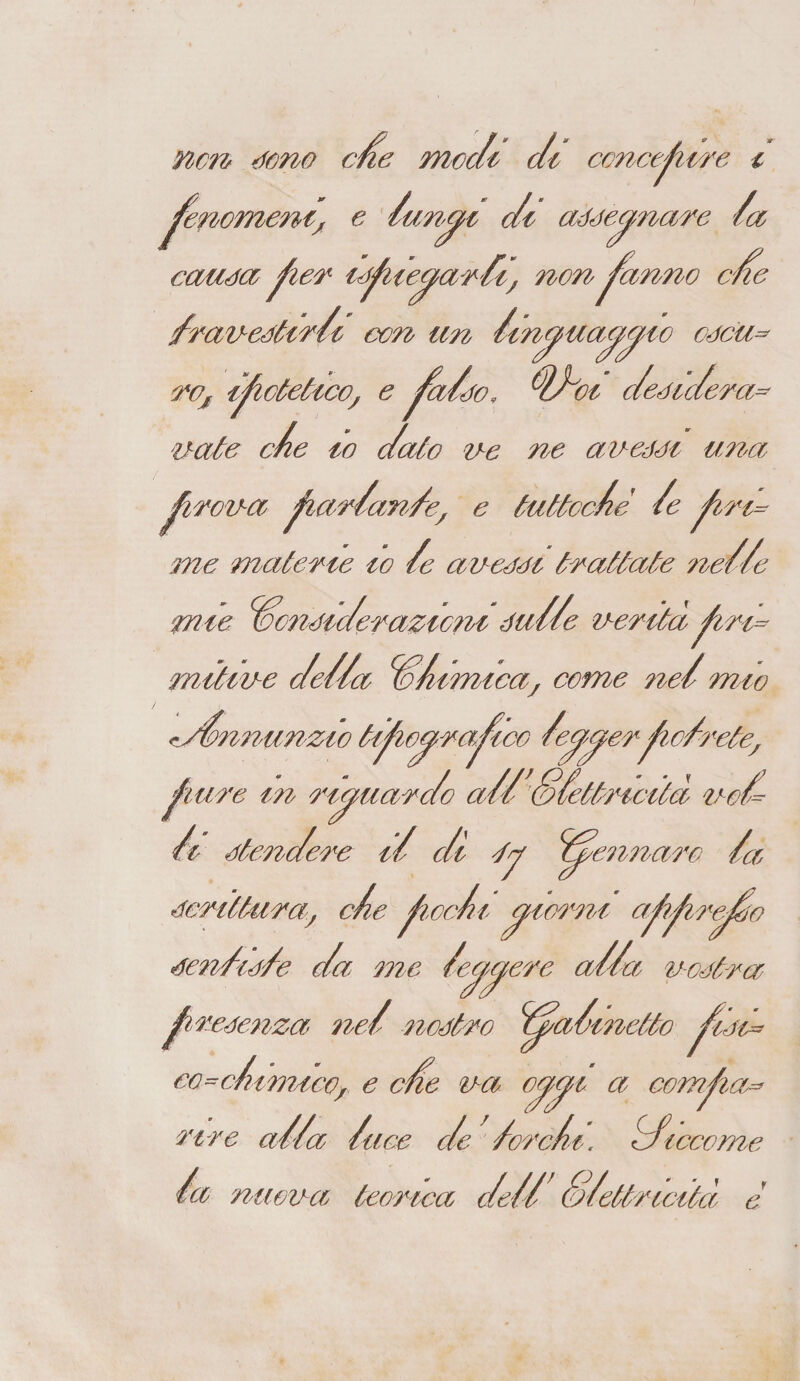 non sono che modi di concepire i
fenomeni, e lungi di assegnare la
causa per ispiegarli, non fanno che
travestirli con un linguaggio oscu=
ro, ipotetico, e falso. Voi desidera=
vate che io dato ve ne avessi una
prova parlante, e tuttochè le pri=
me materie io le avessi trattate nelle
mie Considerazioni sulle verità pri=
mitive della Chimica, come nel mio
Annunzio tipografico legger potrete,
pure in riguardo all' Elettricità vol=
li stendere il dì 17 Gennaro la
scrittura, che pochi giorni appresso
sentiste da me leggere alla vostra
presenza nel nostro Gabinetto fisi=
co=chimico, e che va oggi a compa=
rire alla luce de' torchi. Siccome
la nuova teorica dell' Elettricità è